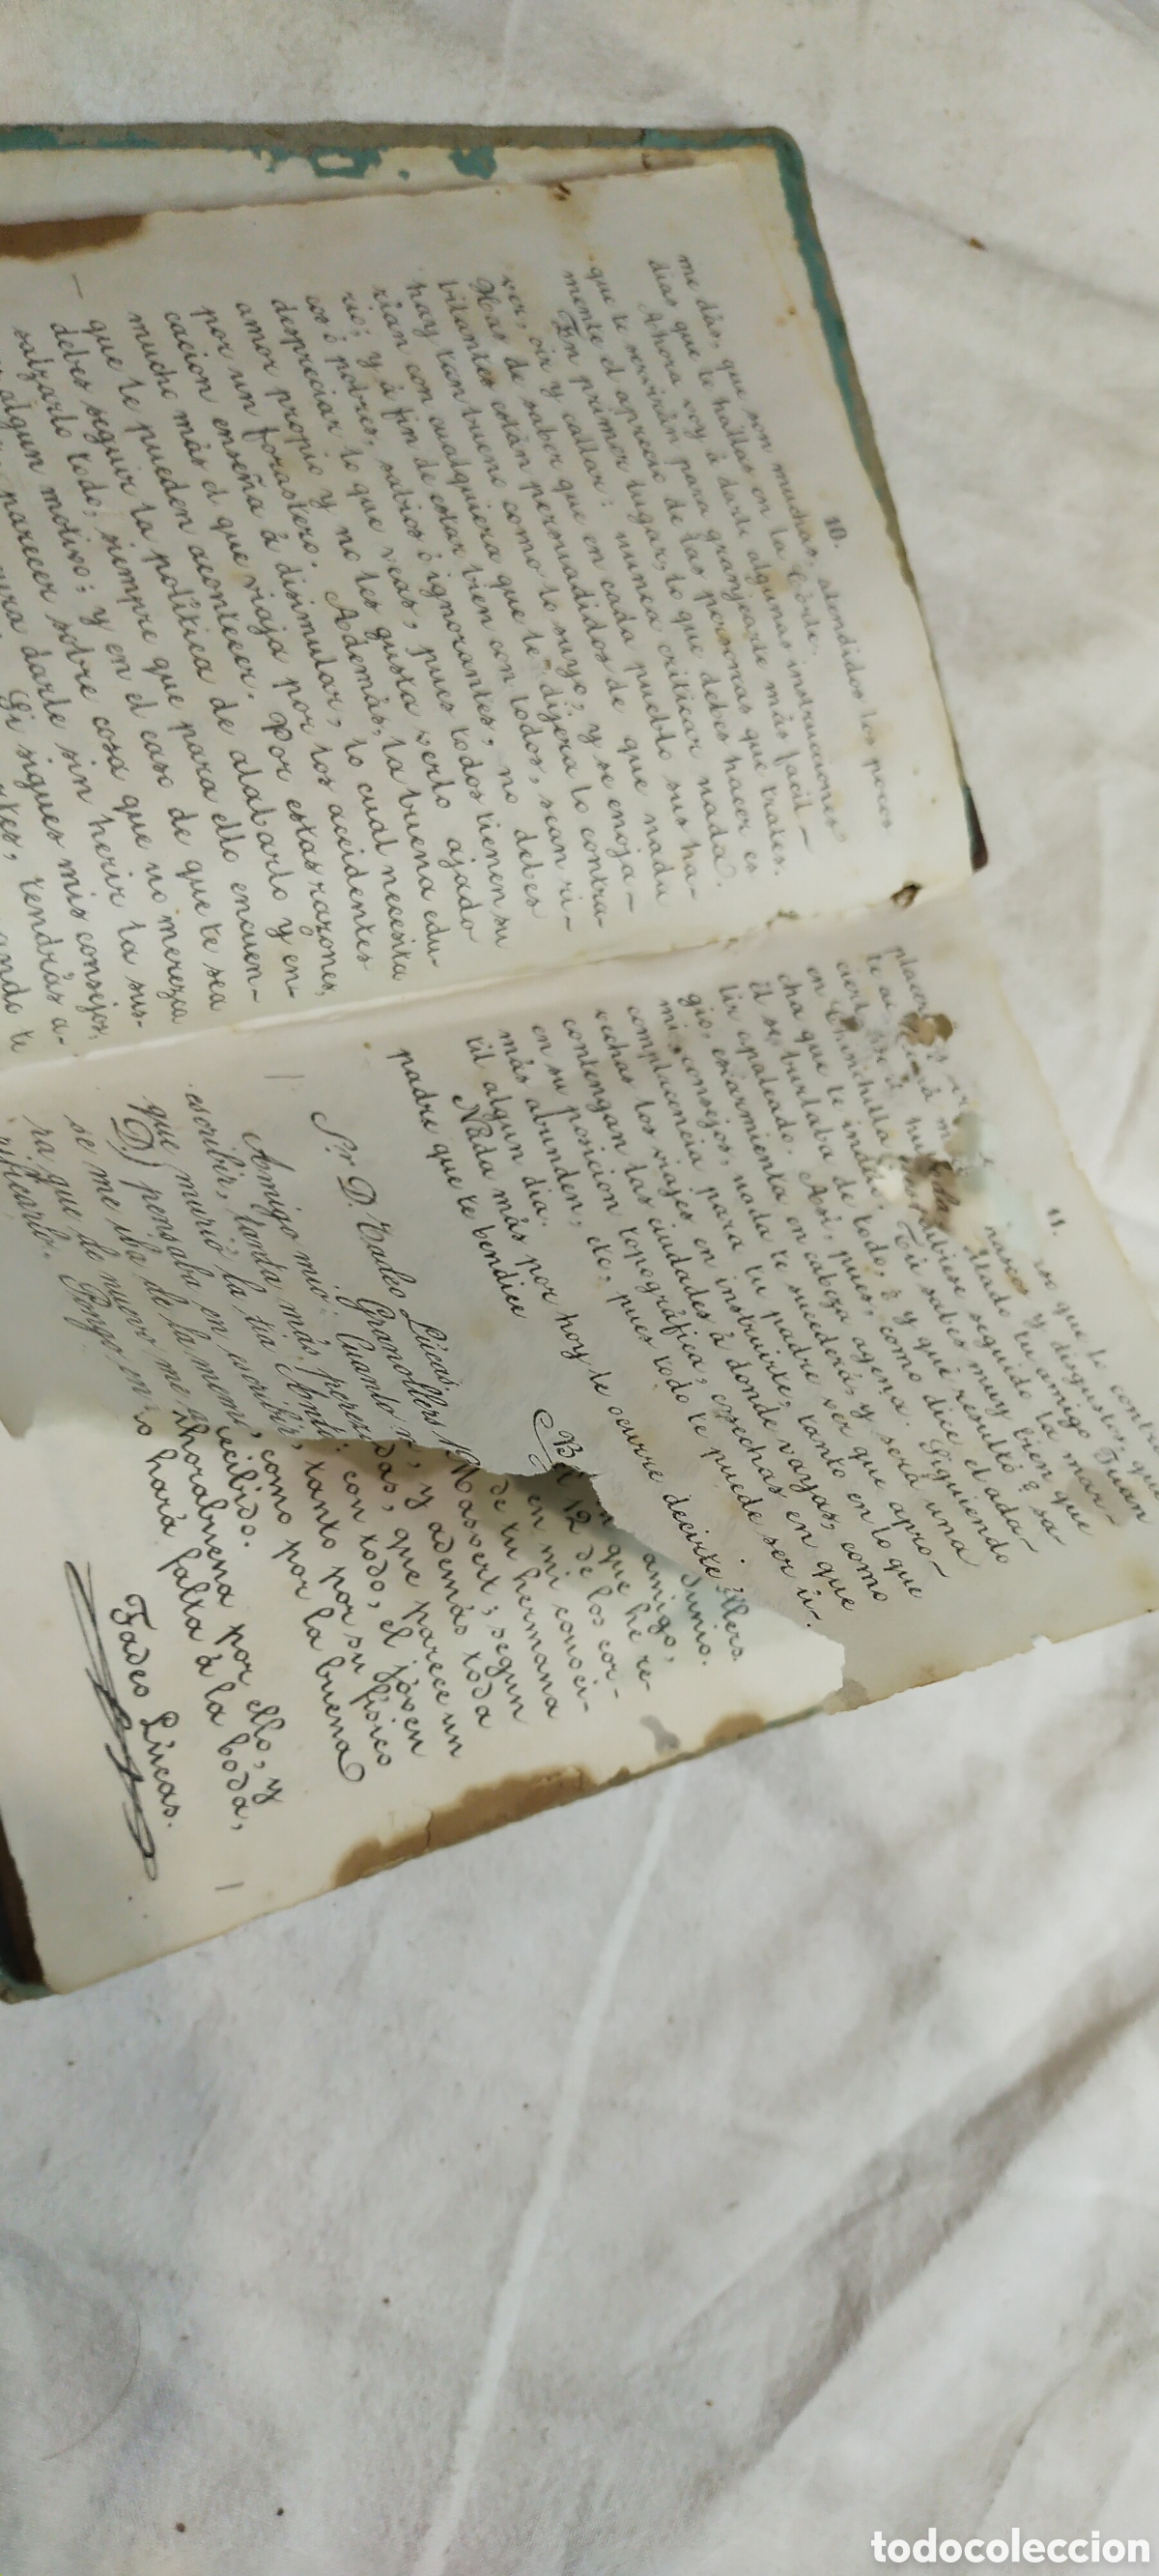 10.
me dás, que son muchas, atendidos los pocos
dias que te hallas en la Córte.
Ahora voy á darte algunas instrucciones,
que te servirán para granjearte más facil-
mente el aprecio de las personas que trates.
En primer lugar, lo que debes hacer es
ver, oir y callar: nunca criticar nada.
Has de saber que en cada pueblo sus ha-
bitantes están persuadidos de que nada
hay tan bueno como lo suyo, y se enoja-
rian con cualquiera que le dijera lo contra-
rio; y á fin de estar bien con todos, sean ri-
cos ó pobres, sabios ó ignorantes, no debes
despreciar lo que veas, pues todos tienen su
amor propio y no les gusta verlo ajado
por un forastero. Además, la buena edu-
cacion enseña á disimular, lo cual necesita
mucho más el que viaja por los accidentes
que le pueden acontecer. Por estas razones,
debes seguir la política de alabarlo y en-
salzarlo todo, siempre que para ello encuen-
algun motivo; y en el caso de que te sea
parecer sobre cosa que no merezca
darle sin herir la sus-
Si sigues mis consejos,
tendrás a-
ando te
11.
so que te contra
nases y disgustos, que
ittado tu amigo Juan
en Chinchilla hubiese seguido la mar-
cha que te indico. Tú sabes muy bien que
él se burlaba de todo, ¿y qué resultó? sa-
lir apaleado. Así, pues, como dice el ada-
gio, escarmienta en cabeza agena. Siguiendo
mis consejos, nada te sucederá, y será una
complacencia para tu padre ver que apro-
vechas los viajes en instruirte, tanto en lo que
contengan las ciudades á donde vayas, como
en su posicion topográfica, cosechas en que
más abunden, etc., pues todo te puede ser ú-
til algun dia.
Nada más por hoy le ocurre decirte á
padre que te bendice
Sr. D. Tadeo Lúcas.
Granollers
Amigo mio: Cuanto
escribir, tanta más perez
que murió la tia
(D) pensaba en escribir
se me iba de la mem
ra que de nuevo me
rificarlo. Pongo en
llers.
Junio.
amigo,
que he re-
12 de los cor-
en mi conoci-
de tu hermana
Masvert, segun
y además toda
das, que parece un
con todo, el jóven
tanto por su físico
como por la buena
ecibido.
horabuena por ello, y
o hará falta á la boda,
Tadeo Lúcas.
todocoleccion